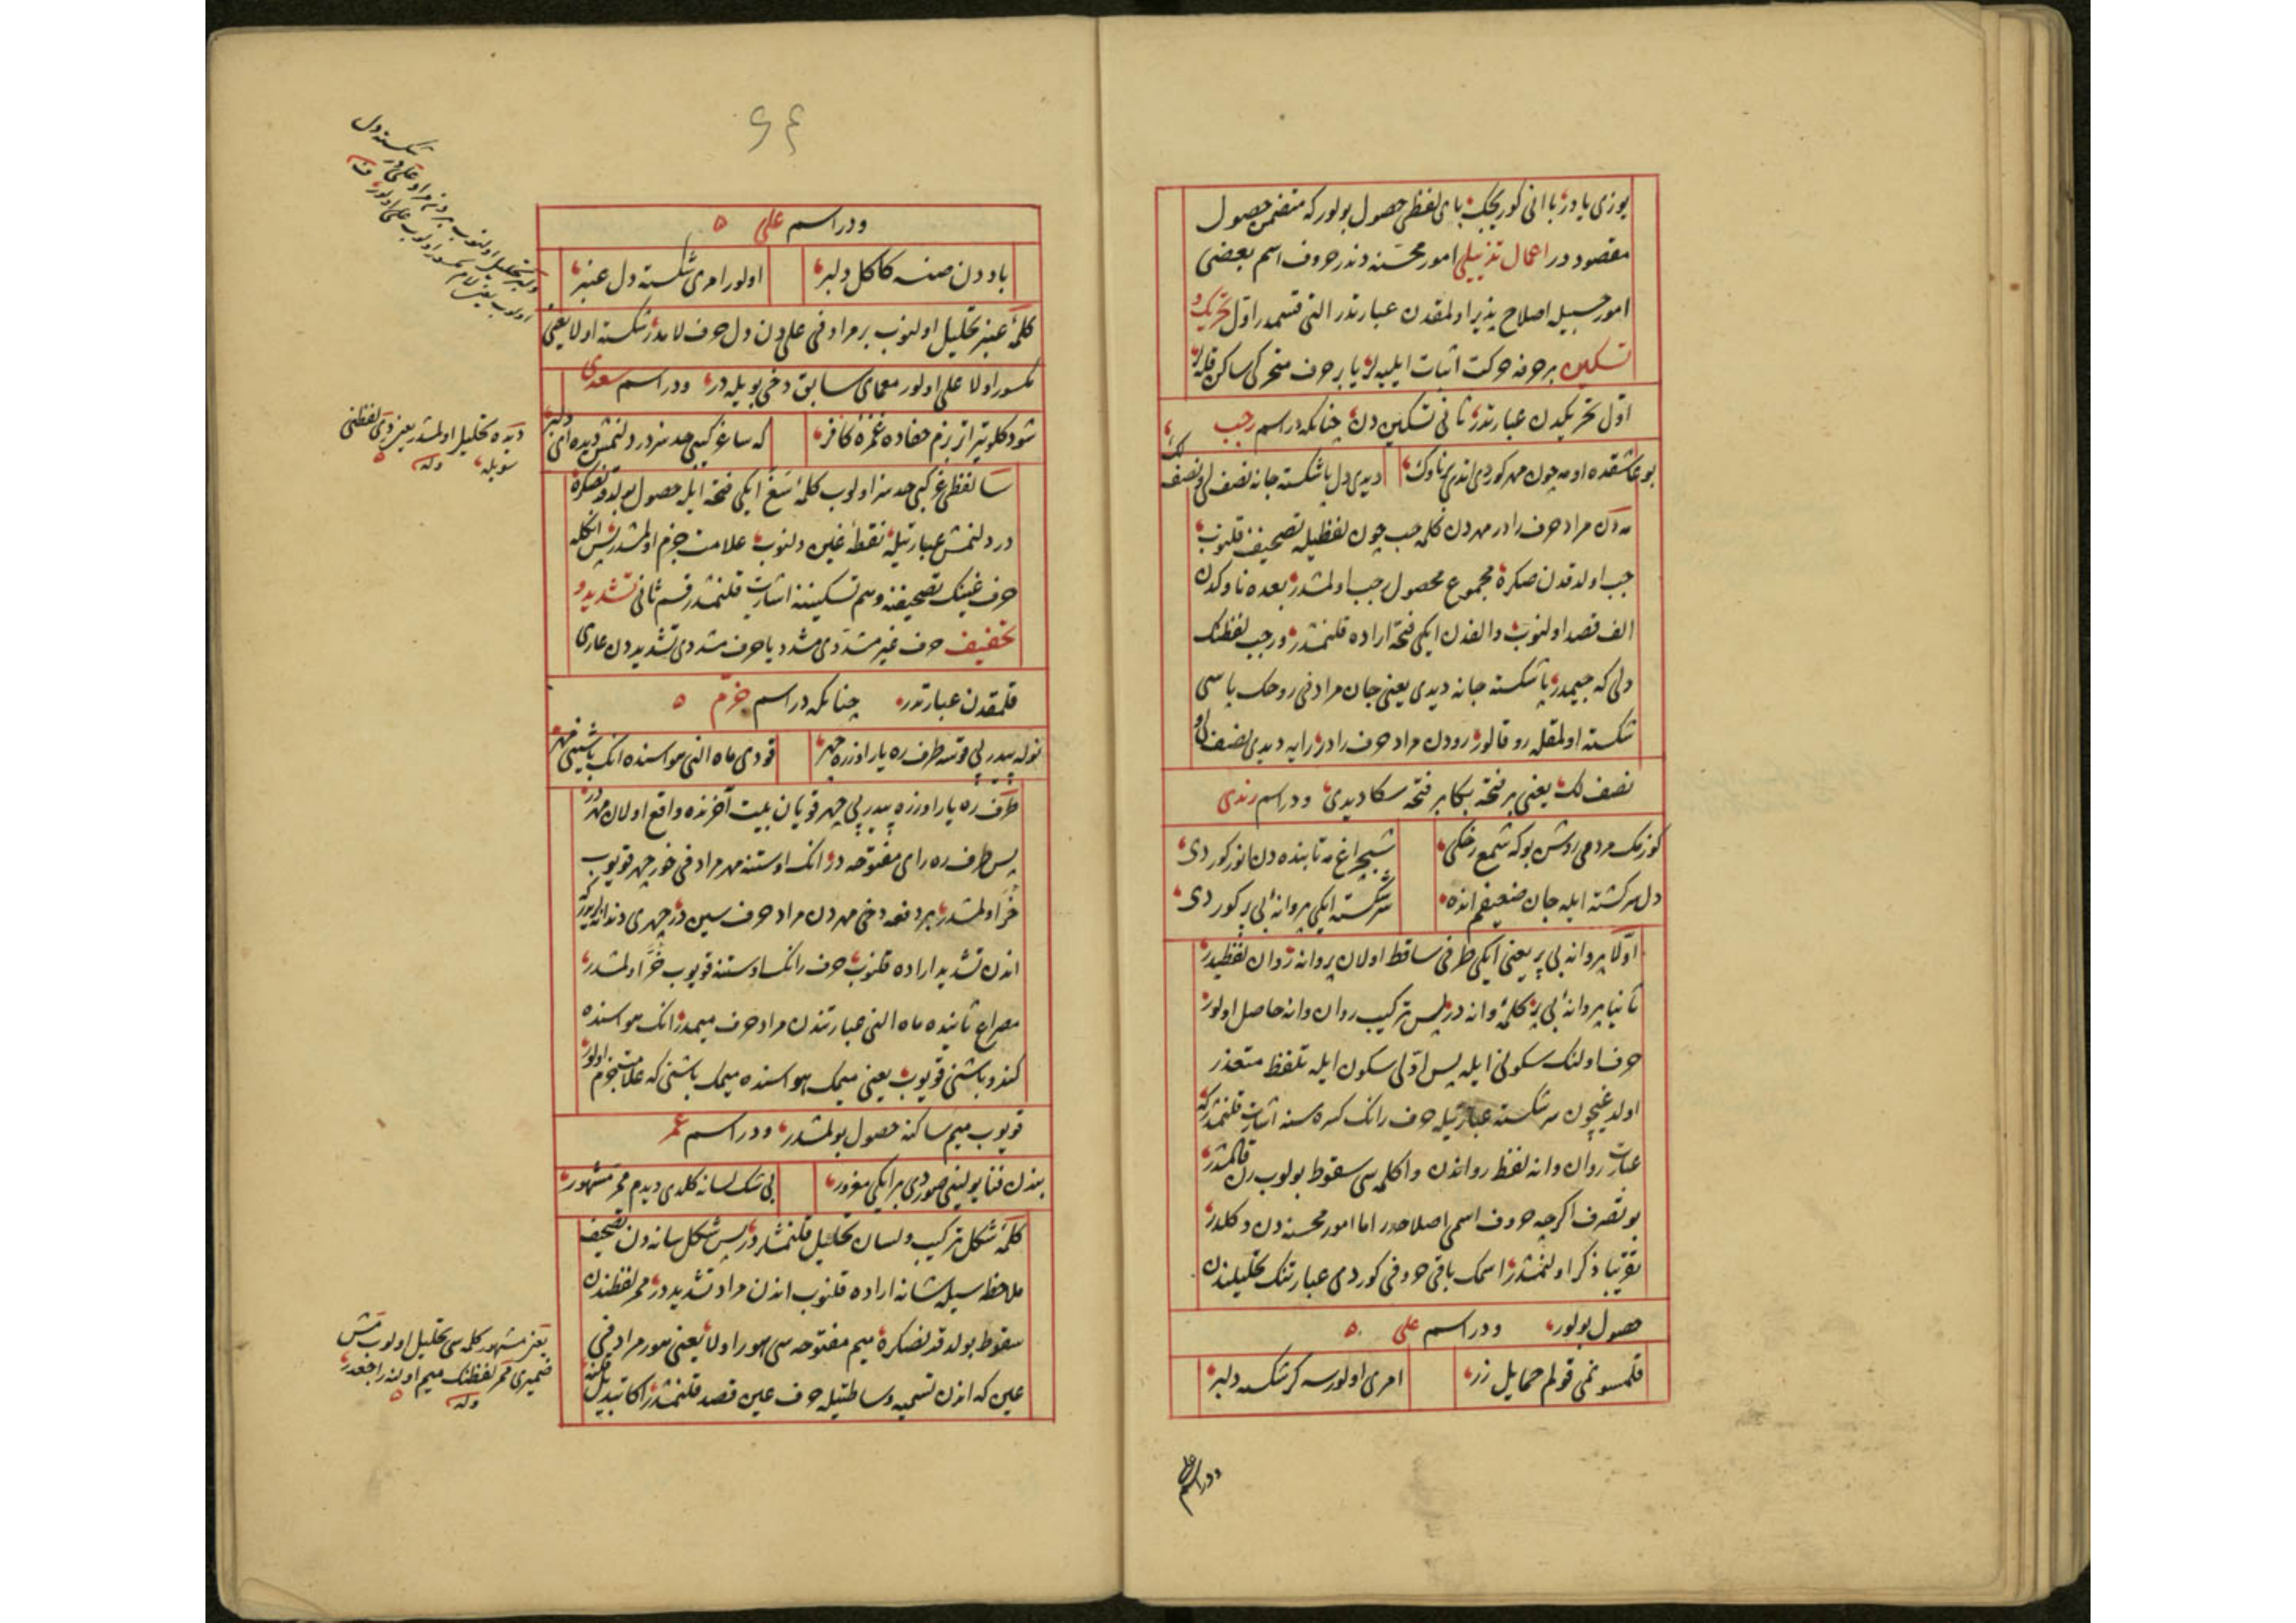 یوزی یا در با انی کوریجک بای لفظی حصول بولور که متضمن حصول
مقصود در اعمال تذییلی امور محسّنه دندر حروف اسم بعضی
امور حسبیله اصلاح پذیر اولمقدن عبارتدر التی قسمدر اوّل تحریک و
تسکین بر حرفه حرکت اثبات ایلیه لر یا بر حرف متحرکی ساکن قله لر
اوّل تحریکدن عبارتدر ثانی تسکین دن چنانکه در اسم رجب
بو عاشقده او مه چون مهر کوردی اندی ناوک
دیدی دل پا شکسته جانه نصف لی و نصف لک
مه دن مراد حرف رادر مهردن کلمه حب چون لفظیله تصحیف قلنوب
جب اولدقدن صکره مجموع محصول رجب اولمشدر بعده ناوکدن
الف قصد اولنوب و الفدن ایکی فتحه اراده قلنمشدر و رجب لفظنک
دلی که جیمدر پا شکسته جانه دیدی یعنی جان مرادفی روحک پاسی
شکسته اولمقله رو قالور رودن مراد حرف رادر رایه دیدی نصف لی و
نصف لک یعنی بر فتحه بکا بر فتحه سکا دیدی ودر اسم رندی
کوزمک مردمی روشن بو که شمع رخکی
شبچراغ مه تابنده دن انور کوردی
دل سرکشته ایله جان ضعیفم انده
سر شکسته ایکی پروانه بی پر کوردی
اوّلا پروانه بی پر یعنی ایکی طرفی ساقط اولان پروانه روان لفظیدر
ثانیا پروانه بی پر کلمه وانه در پس ترکیب روان وانه حاصل اولور
حرف اولنک سکونی ایله پس اوّلی سکون ایله تلفظ متعذر
اولدیغیچون سر شکسته عبارتیله حرف رانک کسره سنه اشارت قلنمشدر که
عبارت روان وانه لفظ رواندن وا کلمه سی سقوط بولوب رن قالمشدر
بو تصرف اکرچه حروف اسمی اصلاحدر اما امور محسنه دن دکلدر
تقریبا ذکر اولنمشدر اسمک باقی حروفی کوردی عبارتنک تحلیلندن
حصول بولور ودر اسم علی
قلمسونمی قولم حمایل زر
امری اولورسه کر شکسه دلبر
ودر اسم علی
۶۴
ودر اسم علی
باددن صنه کاکل دلبر
اولور امری شکسته دل عنبر
کلمه عنبر تحلیل اولنوب بر مرادفی علی دن دل حرف لامدر شکسته اولا یعنی
مکسور اولا علی اولور معمای سابق دخی بویله در ودر اسم سعدی
شود کلوتیر از بزم جفاده غمزه کافر
که ساغر کبی حدسز درد لنمش دیده امی دلبر
سا لفظی غ کبی حدسز اولوب کلمه سغ ایکی فتحه ایله حصول بولدقدنصکره
درد لنمش عبارتیله نقطه غین دلنوب علامت جزم اولمشدر پس انکله
حرف غینک تصحیفنه و هم تسکیننه اشارت قلنمشدر قسم ثانی تشدید و
تخفیف حرف غیر مشدّدی مشدد یا حرف مشددی تشدیددن عاری
قلمقدن عبارتدر چنانکه در اسم خرّم
نوله پیدرپی قوسه طرف ره یار اوزره چهر
قودی ماه النی هواسنده انک باشینی مهر
طرف ره یار اوزره پیدرپی چهر قویان بیت آخرنده واقع اولان مهردر
پس طرف ره رای مفتوحه در انک اوستنه مهر مرادفی خور چهر قویوب
خر اولمشدر بر دفعه دخی مهردن مراد حرف سین در چهری دندانه لریدر که
اندن تشدید اراده قلنوب حرف رانک اوستنه قویوب خرّ اولمشدر
مصراع ثانیده ماه النی عبارتندن مراد حرف میمدر انک هواسنده
کندو باشنی قویوب یعنی میمک هواسنده میمک باشنی که علامت جزم اولور
قویوب میم ساکنه حصول بولمشدر ودر اسم عمر
بی شک لسانه کلدی دیدم محر مشهور
کلمه شکل ترکیب و لسان تحلیل قلنمشدر پس شکل سانه دن تصحیف
ملاحظه سیله شانه اراده قلنوب اندن مراد تشدید در محر لفظندن
سقوط بولدقدنصکره میم مفتوحه سی هور اولا یعنی هور مرادفی
عین که اندن تسمیه وساطتیله حرف عین قصد قلنمشدر اکا تبدیل قلنه
دیده تحلیل اولمشدر یعنی دی لفظنی
سویله وله
یعنی مشهور کلمه سی تحلیل اولوب مش
ضمیری محر لفظنک میم اولنه راجعدر
وله